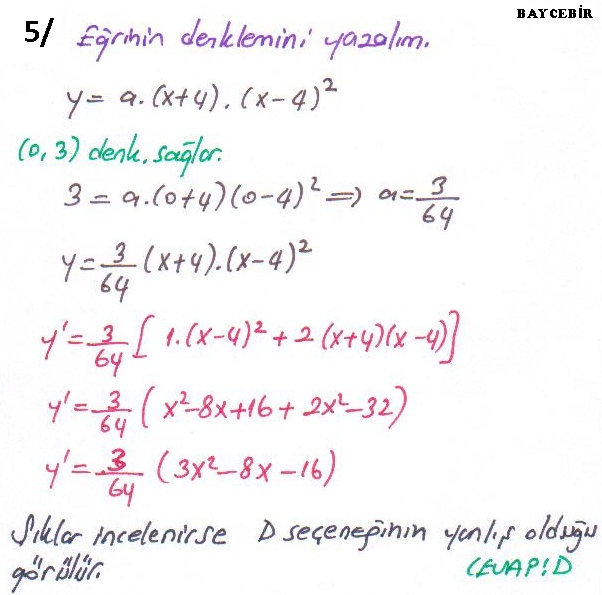 BAYCEBİR
5/ Eğrinin denklemini yazalım.
y = a.(x+4).(x-4)²
(0,3) denk. sağlar.
3 = a.(0+4)(0-4)² ⇒ a = 3/64
y = 3/64 (x+4).(x-4)²
y' = 3/64 [1.(x-4)² + 2(x+4)(x-4)]
y' = 3/64 (x²-8x+16+2x²-32)
y' = 3/64 (3x²-8x-16)
Şıklar incelenirse D seçeneğinin yanlış olduğu
görülür. CEVAP: D